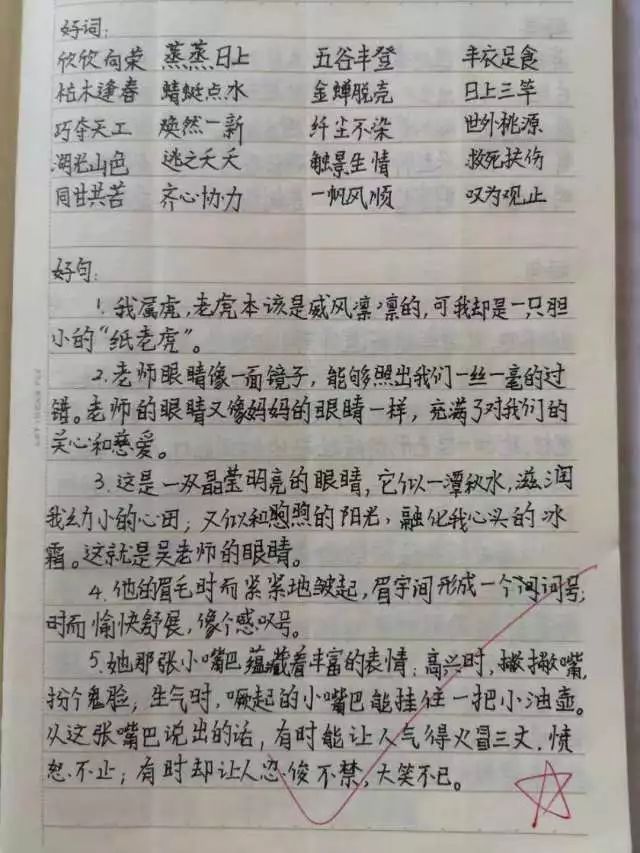 好词:
欣欣向荣 蒸蒸日上 五谷丰登 丰衣足食
枯木逢春 蜻蜓点水 金蝉脱壳 日上三竿
巧夺天工 焕然一新 纤尘不染 世外桃源
湖光山色 逃之夭夭 触景生情 救死扶伤
同甘共苦 齐心协力 一帆风顺 叹为观止
好句:
1. 我属虎,老虎本该是威风凛凛的,可我却是一只胆
小的“纸老虎”。
2. 老师眼睛像一面镜子,能够照出我们一丝一毫的过
错。老师的眼睛又像妈妈的眼睛一样,充满了对我们的
关心和慈爱。
3. 这是一双晶莹明亮的眼睛,它似一潭秋水,滋润
我幼小的心田;又似和煦的阳光,融化我心头的冰
霜。这就是吴老师的眼睛。
4. 他的眉毛时而紧紧地皱起,眉宇间形成一个问号;
时而愉快舒展,像个感叹号。
5. 她那张小嘴巴蕴藏着丰富的表情:高兴时,撇撇嘴,
扮个鬼脸;生气时,噘起的小嘴巴能挂住一把小油壶。
从这张嘴巴说出的话,有时能让人气得火冒三丈,愤
怒不止;有时却让人忍俊不禁,大笑不已。